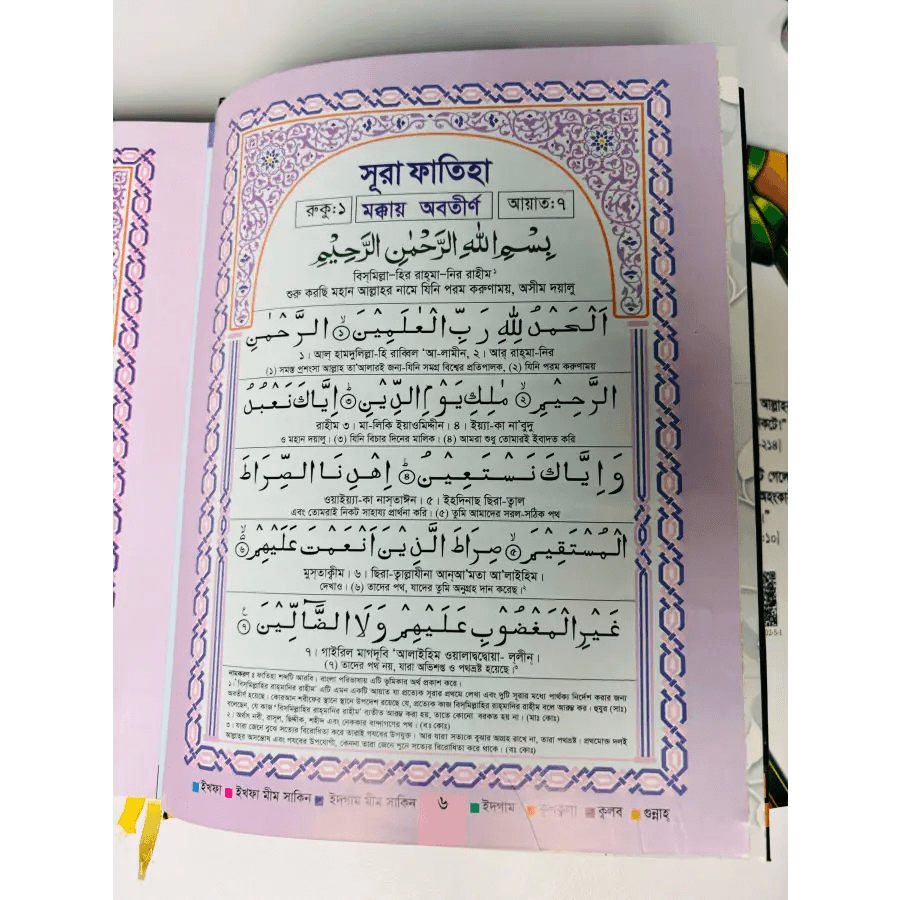 সূরা ফাতিহা
রুকু:১ মক্কায় অবতীর্ণ আয়াত:৭
بِسْمِ اللهِ الرَّحْمٰنِ الرَّحِيْمِ
বিস্‌মিল্লা-হির রাহ্‌মা-নির রাহীম১
শুরু করছি মহান আল্লাহর নামে যিনি পরম করুণাময়, অসীম দয়ালু
اَلْحَمْدُ لِلّٰهِ رَبِّ الْعٰلَمِيْنَ ۙ﴿۱﴾ الرَّحْمٰنِ
১। আল্ হামদুলিল্লা-হি রাব্বিল 'আ-লামীন, ২। আর্ রাহ্‌মা-নির
(১) সমস্ত প্রশংসা আল্লাহ তা'আলারই জন্য-যিনি সমগ্র বিশ্বের প্রতিপালক, (২) যিনি পরম করুণাময়
الرَّحِيْمِ ۙ﴿۲﴾ مٰلِكِ يَوْمِ الدِّيْنِ ؕ﴿۳﴾ اِيَّاكَ نَعْبُدُ
রাহীম ৩। মা-লিকি ইয়াওমিদ্দীন। ৪। ইয়্যা-কা না'বুদু
ও মহান দয়ালু। (৩) যিনি বিচার দিনের মালিক। (৪) আমরা শুধু তোমারই ইবাদত করি
وَ اِيَّاكَ نَسْتَعِيْنُ ؕ﴿۴﴾ اِهْدِنَا الصِّرَاطَ
ওয়াইয়্যা-কা নাস্‌তাঈন। ৫। ইহদিনাছ ছিরা-ত্বাল
এবং তোমরাই নিকট সাহায্য প্রার্থনা করি। (৫) তুমি আমাদের সরল-সঠিক পথ
الْمُسْتَقِيْمَ ۙ﴿۵﴾ صِرَاطَ الَّذِيْنَ اَنْعَمْتَ عَلَيْهِمْ ۙ﴿۶﴾
মুস্‌তাক্বীম। ৬। ছিরা-ত্বাল্লাযীনা আন্‌আ'মতা আ'লাইহিম।
দেখাও। (৬) তাদের পথ, যাদের তুমি অনুগ্রহ দান করেছ।২
غَيْرِ الْمَغْضُوْبِ عَلَيْهِمْ وَلَا الضَّآلِّيْنَ ﴿۷﴾
৭। গাইরিল মাগদূবি 'আলাইহিম ওয়ালাদ্বদ্বোয়া- ললীন্।
(৭) তাদের পথ নয়, যারা অভিশপ্ত ও পথভ্রষ্ট হয়েছে।৩
নামকরণ ঃ ফাতিহা শব্দটি আরবি। বাংলা পরিভাষায় এটি ভূমিকার অর্থ প্রকাশ করে।
১। 'বিসমিল্লাহির রাহ্‌মানির রাহীম' এটি এমন একটি আয়াত যা প্রত্যেক সূরার প্রথমে লেখা এবং দুটি সূরার মধ্যে পার্থক্য নির্দেশ করার জন্য
অবতীর্ণ হয়েছে। কোরআন শরীফের স্থানে স্থানে উপদেশ রয়েছে যে, প্রত্যেক কাজ বিস্‌মিল্লাহির রাহ্‌মানির রাহীম বলে আরম্ভ কর। হুযুর (সাঃ)
বলেছেন, যে কাজ 'বিস্‌মিল্লাহির রাহ্‌মানির রাহীম' ব্যতীত আরম্ভ করা হয়, তাতে কোনো বরকত হয় না। (মাঃ কোঃ)
২। অর্থাৎ নবী, রাসূল, ছিদ্দীক, শহীদ এবং নেককার বান্দাগণের পথ। (বঃ কোঃ)
৩। যারা জেনে বুঝে সত্যের বিরোধিতা করে তারাই গযবের উপযুক্ত। আর যারা সত্যকে বুঝার আগ্রহ রাখে না, তারা পথভ্রষ্ট। প্রথমোক্ত দলই
আল্লাহ্‌র অসন্তোষ এবং গযবের উপযোগী, কেননা তারা জেনে শুনে সত্যের বিরোধিতা করে থাকে। (বঃ কোঃ)
ইখফা ইখফা মীম সাকিন ইদগাম মীম সাকিন ৬ ইদগাম ক্বলক্বলা কুলব গুন্নাহ্
আল্লাহর
-২১৪|
গেলে